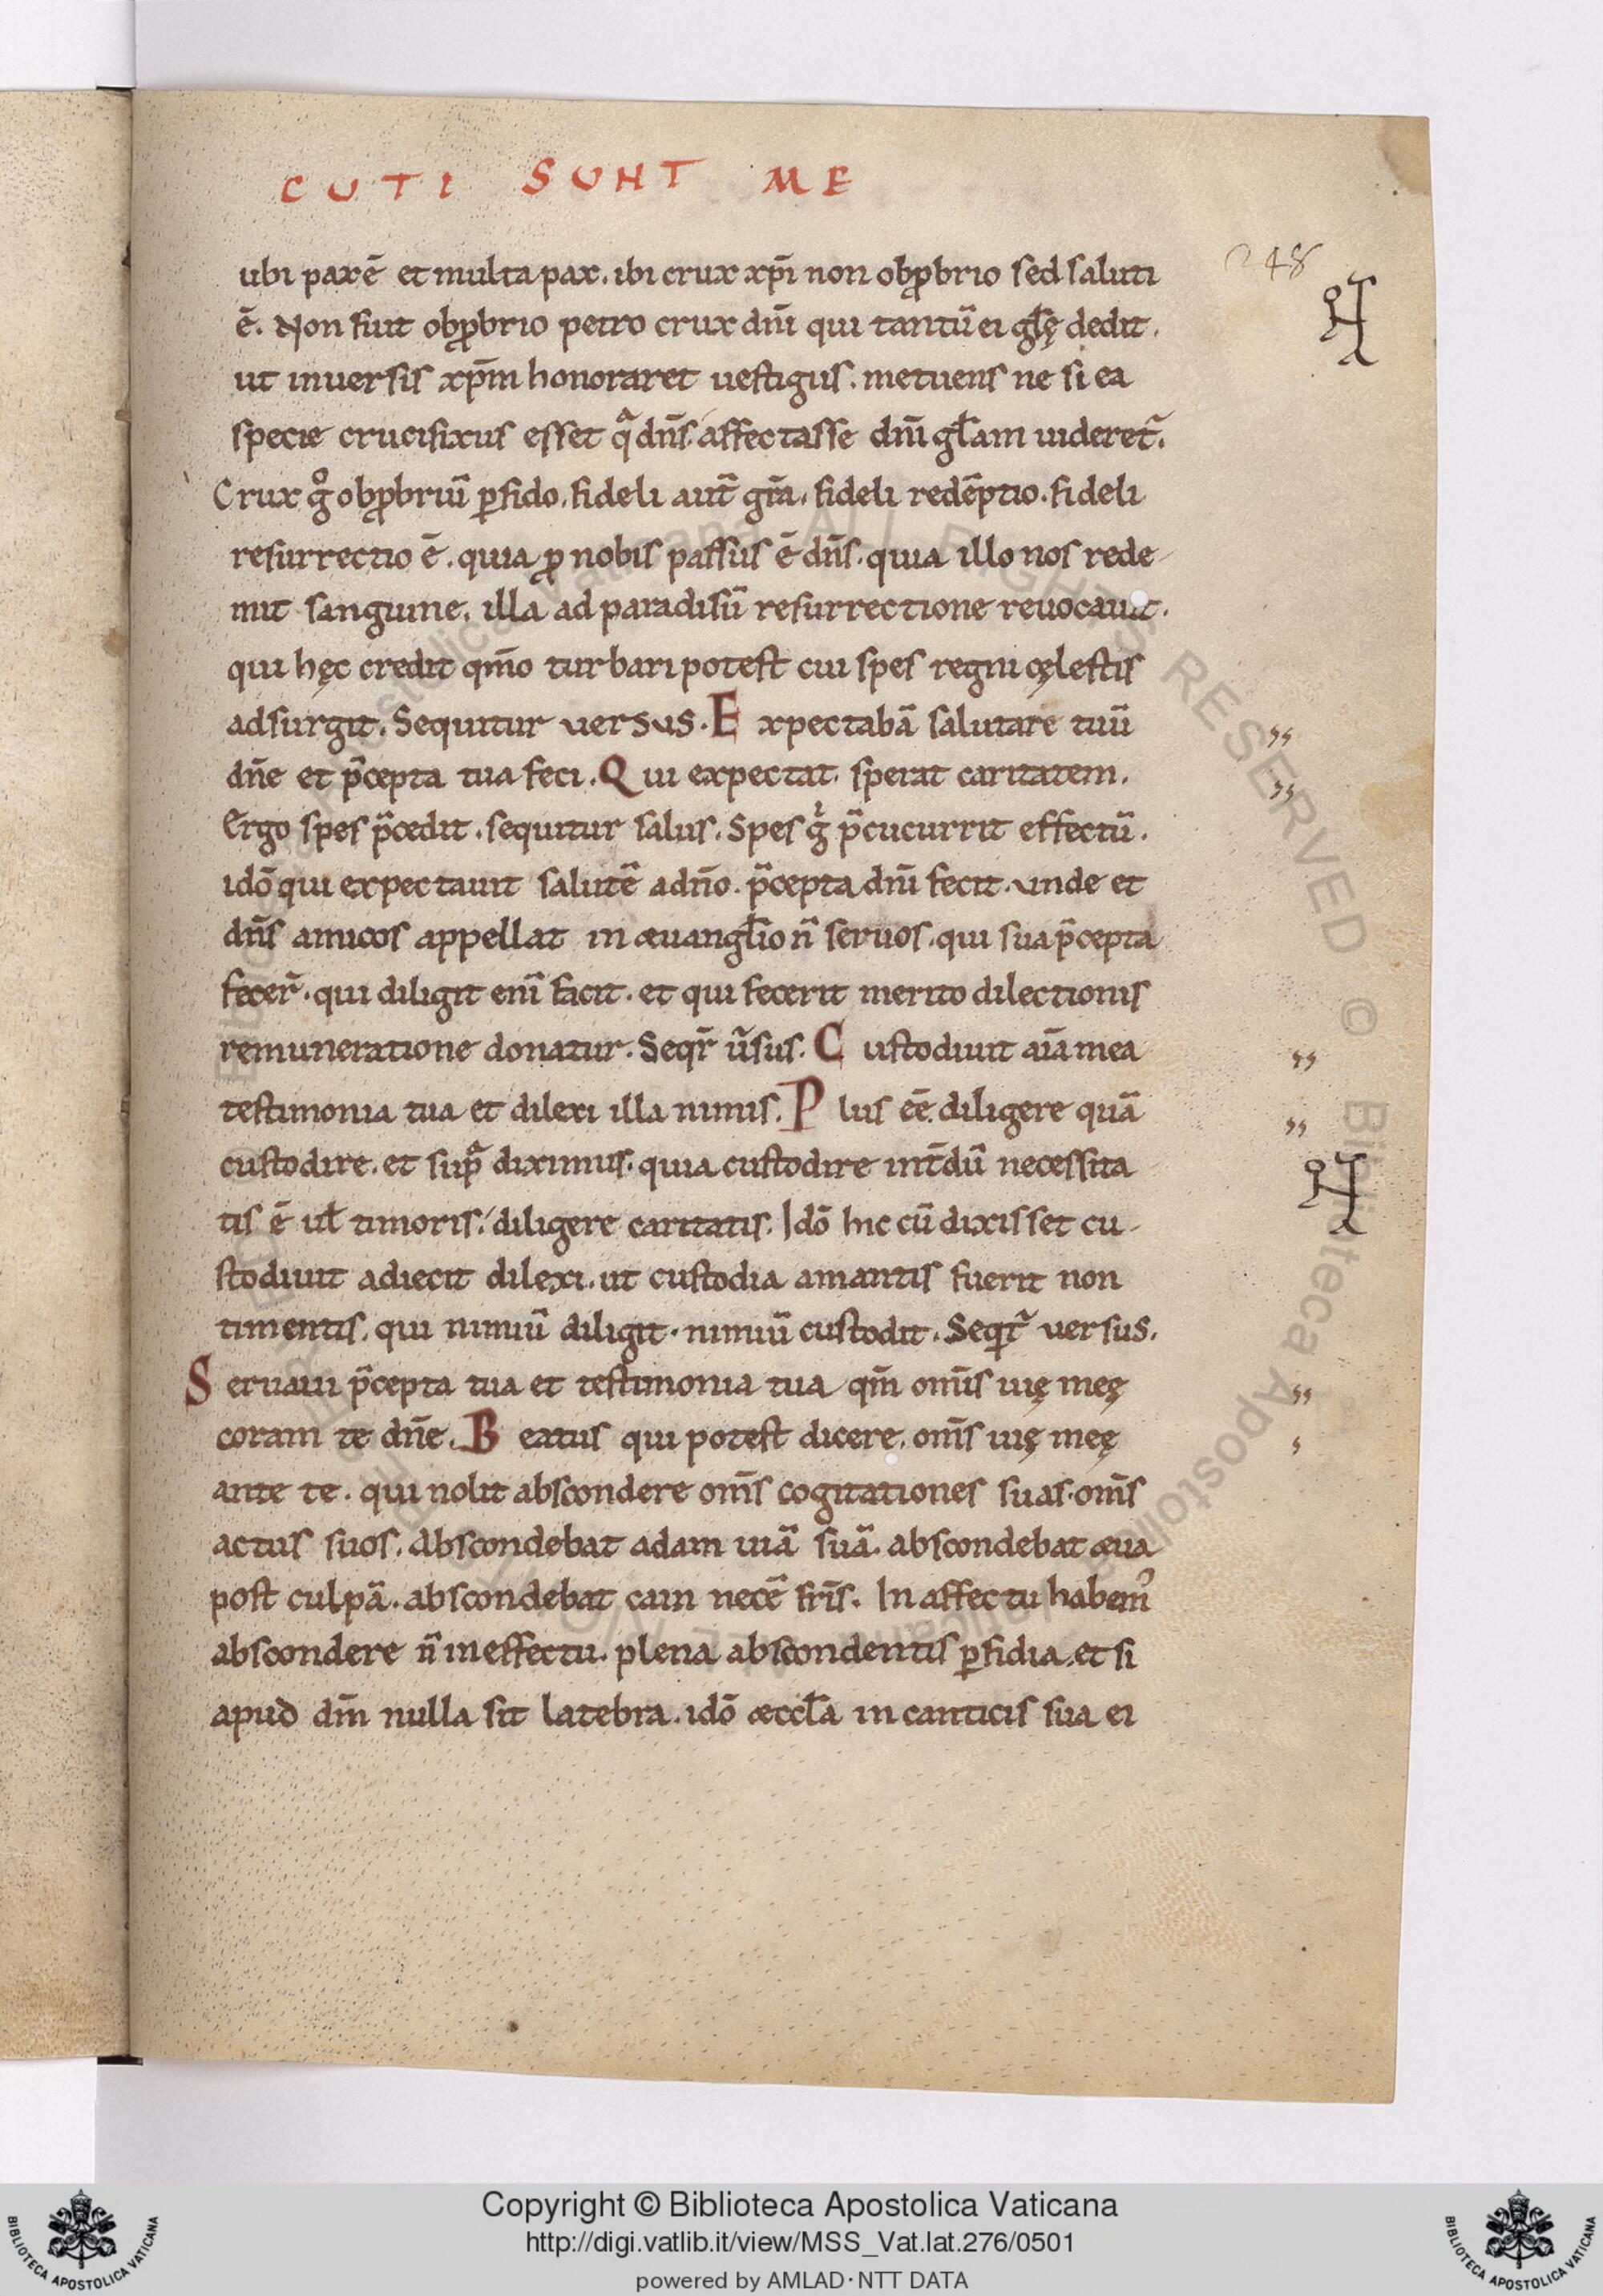 CUTI SUNT ME
248
ubi pax ē et multa pax. ibi crux xp̄i non obꝓbrio sed saluti
ē. Non fuit obꝓbrio petro crux dn̄i qui tantū ei gl̄ę dedit.
ut inuersis xp̄m honoraret uestigiis. metuens ne si ea
specie crucifixus esset qͣ dn̄s. affectasse dn̄i gl̄am uideret᷑.
Crux gͦ obꝓbriū ꝑfido. fideli aut̄ gr̄a. fideli redēptio. fideli
resurrectio ē. quia ꝓ nobis passus ē dn̄s. quia illo nos rede
mit sanguine. illa ad paradisū resurrectione reuocauit.
qui hęc credit qm̄o turbari potest cui spes regni cęlestis
adsurgit. Sequitur versus. Expectabā salutare tuū
dn̄e et p̄cepta tua feci. Qui expectat. sperat caritatem.
Ergo spes p̄cedit. sequitur salus. Spes gͥ p̄cucurrit effectū.
idō qui expectauit salutē a dn̄o. p̄cepta dn̄i fecit. vnde et
dn̄s amicos appellat in æuangl̄io n̄ seruos. qui sua p̄cepta
fecer̄. qui diligit enī facit. et qui fecerit merito dilectionis
remuneratione donatur. Seqr̄ ūsus. Custodiuit aīa mea
testimonia tua et dilexi illa nimis. Plus eē diligere quā
custodire. et supͣ diximus. quia custodire int̄dū necessita
tis ē ul̄ timoris. diligere caritatis. Idō hic cū dixisset cu-
stodiuit adiecit dilexi. ut custodia amantis fuerit non
timentis. qui nimiū diligit. nimiū custodit. Seqt᷑ versus.
Seruaui p̄cepta tua et testimonia tua qm̄ om̄s uię meę
coram te dn̄e. Beatus qui potest dicere. om̄s uię meę
ante te. qui nolit abscondere om̄s cogitationes suas. om̄s
actus suos. Abscondebat adam uiā suā. abscondebat æua
post culpā. abscondebat cain necē fr̄is. In affectu habemꝰ
abscondere n̄ in effectu. plena abscondentis ꝑfidia. et si
apud dm̄ nulla sit latebra. idō æccl̄a in canticis sua ei
Copyright © Biblioteca Apostolica Vaticana
http://digi.vatlib.it/view/MSS_Vat.lat.276/0501
powered by AMLAD·NTT DATA
BIBLIOTECA APOSTOLICA VATICANA
BIBLIOTECA APOSTOLICA VATICANA